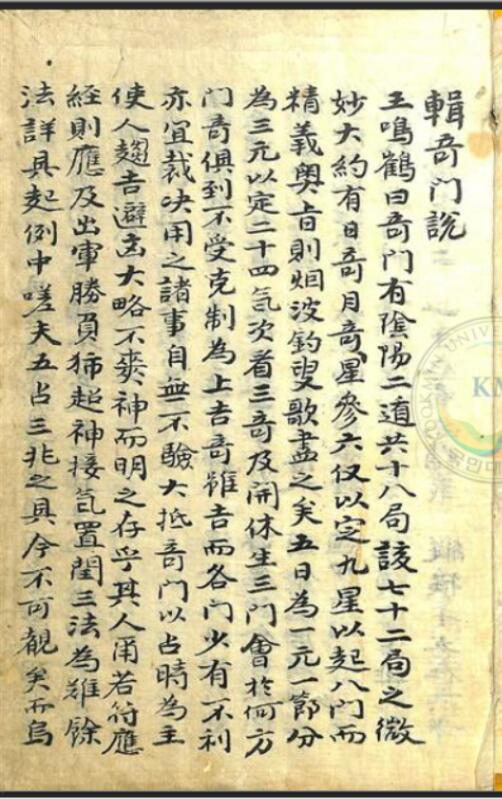 輯奇门說
王鳴鶴曰奇门有陰陽二遁共十八局該七十二局之微
妙大約有日奇月奇星奇參六仪以定九星以起八门而
精義奥旨則烟波釣叟歌盡之矣五日為一元一節分
為三元以定二十四氣次看三奇及開休生三门會於何方
门奇俱到不受克制為上吉奇雖吉而各门少有不利
亦宜裁决用之諸事自無不驗大抵奇门以占時為主
使人趨吉避凶大略不爽神而明之存乎其人甭若符應
經則應及出軍勝負狮超神接氣置閏三法為難餘
法詳具起例中嗟夫五占三兆之具今不可観矣而烏